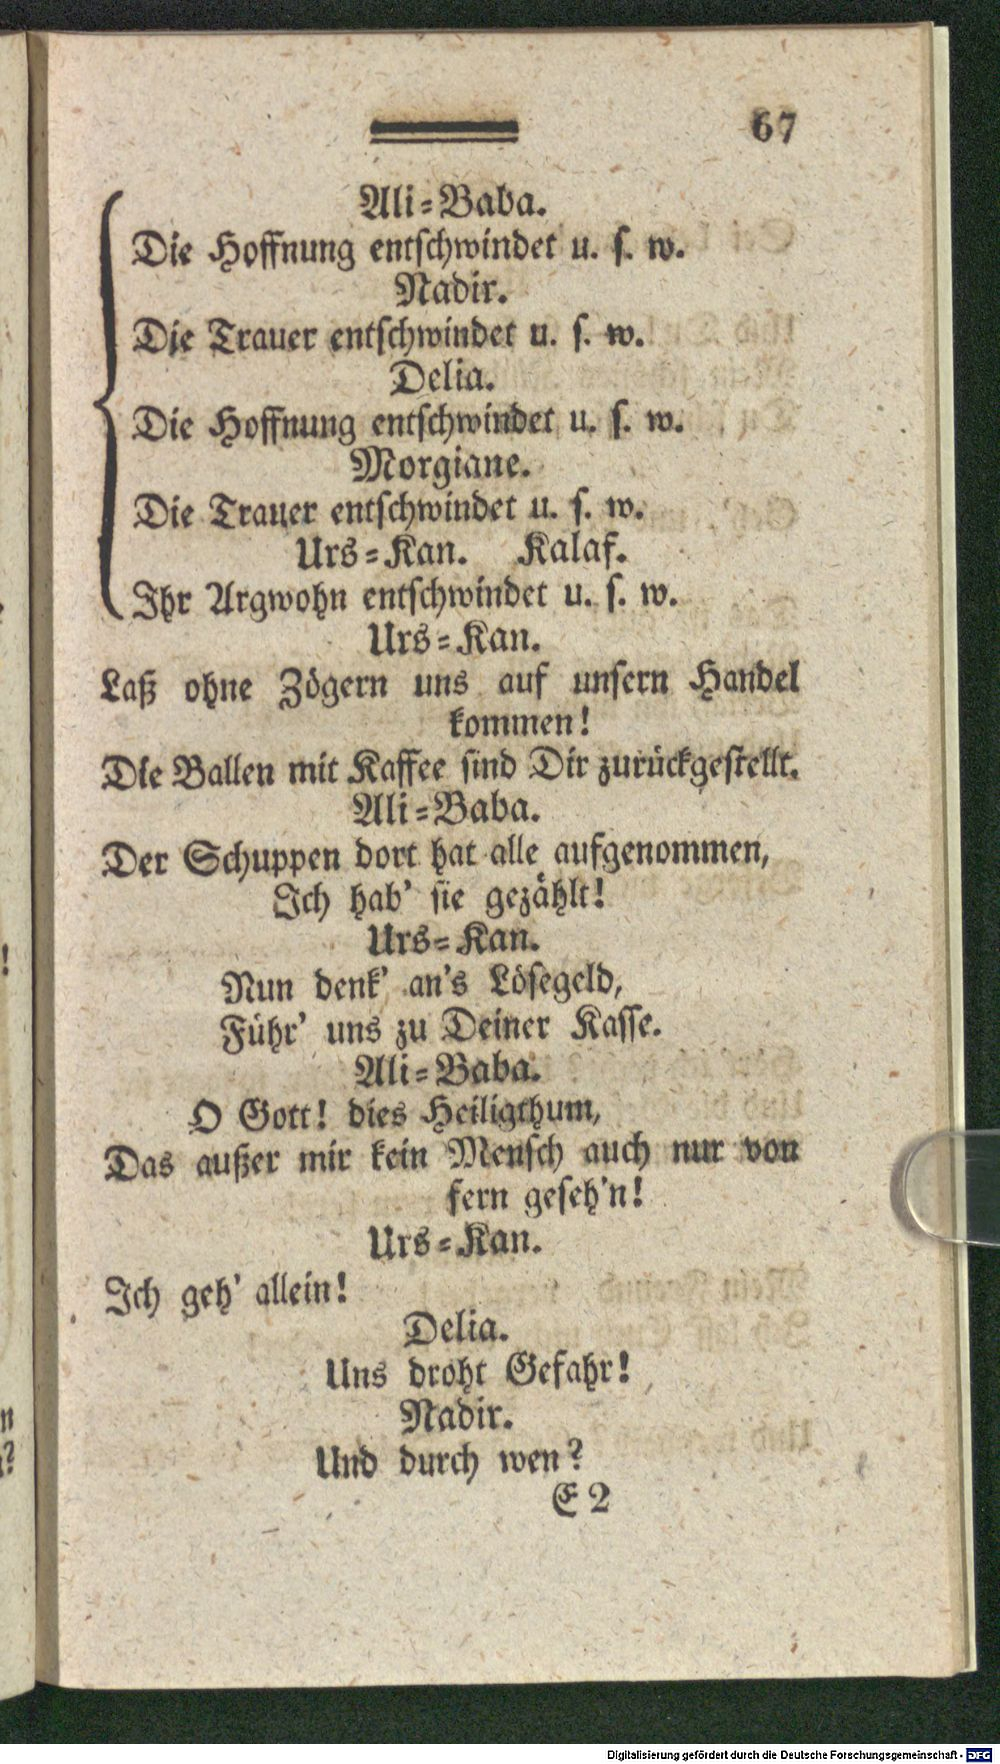 67
Ali-Baba.
Die Hoffnung entschwindet u. s. w.
Nadir.
Die Trauer entschwindet u. s. w.
Delia.
Die Hoffnung entschwindet u. s. w.
Morgiane.
Die Trauer entschwindet u. s. w.
Urs-Kan. Kalaf.
Ihr Argwohn entschwindet u. s. w.
Urs-Kan.
Laß ohne Zögern uns auf unsern Handel
kommen!
Die Ballen mit Kaffee sind Dir zurückgestellt.
Ali-Baba.
Der Schuppen dort hat alle aufgenommen,
Ich hab' sie gezählt!
Urs-Kan.
Nun denk' an's Lösegeld,
Führ' uns zu Deiner Kasse.
Ali-Baba.
O Gott! dies Heiligthum,
Das außer mir kein Mensch auch nur von
fern geseh'n!
Urs-Kan.
Ich geh' allein!
Delia.
Uns droht Gefahr!
Nadir.
Und durch wen?
E 2
Digitalisierung gefördert durch die Deutsche Forschungsgemeinschaft - DFG